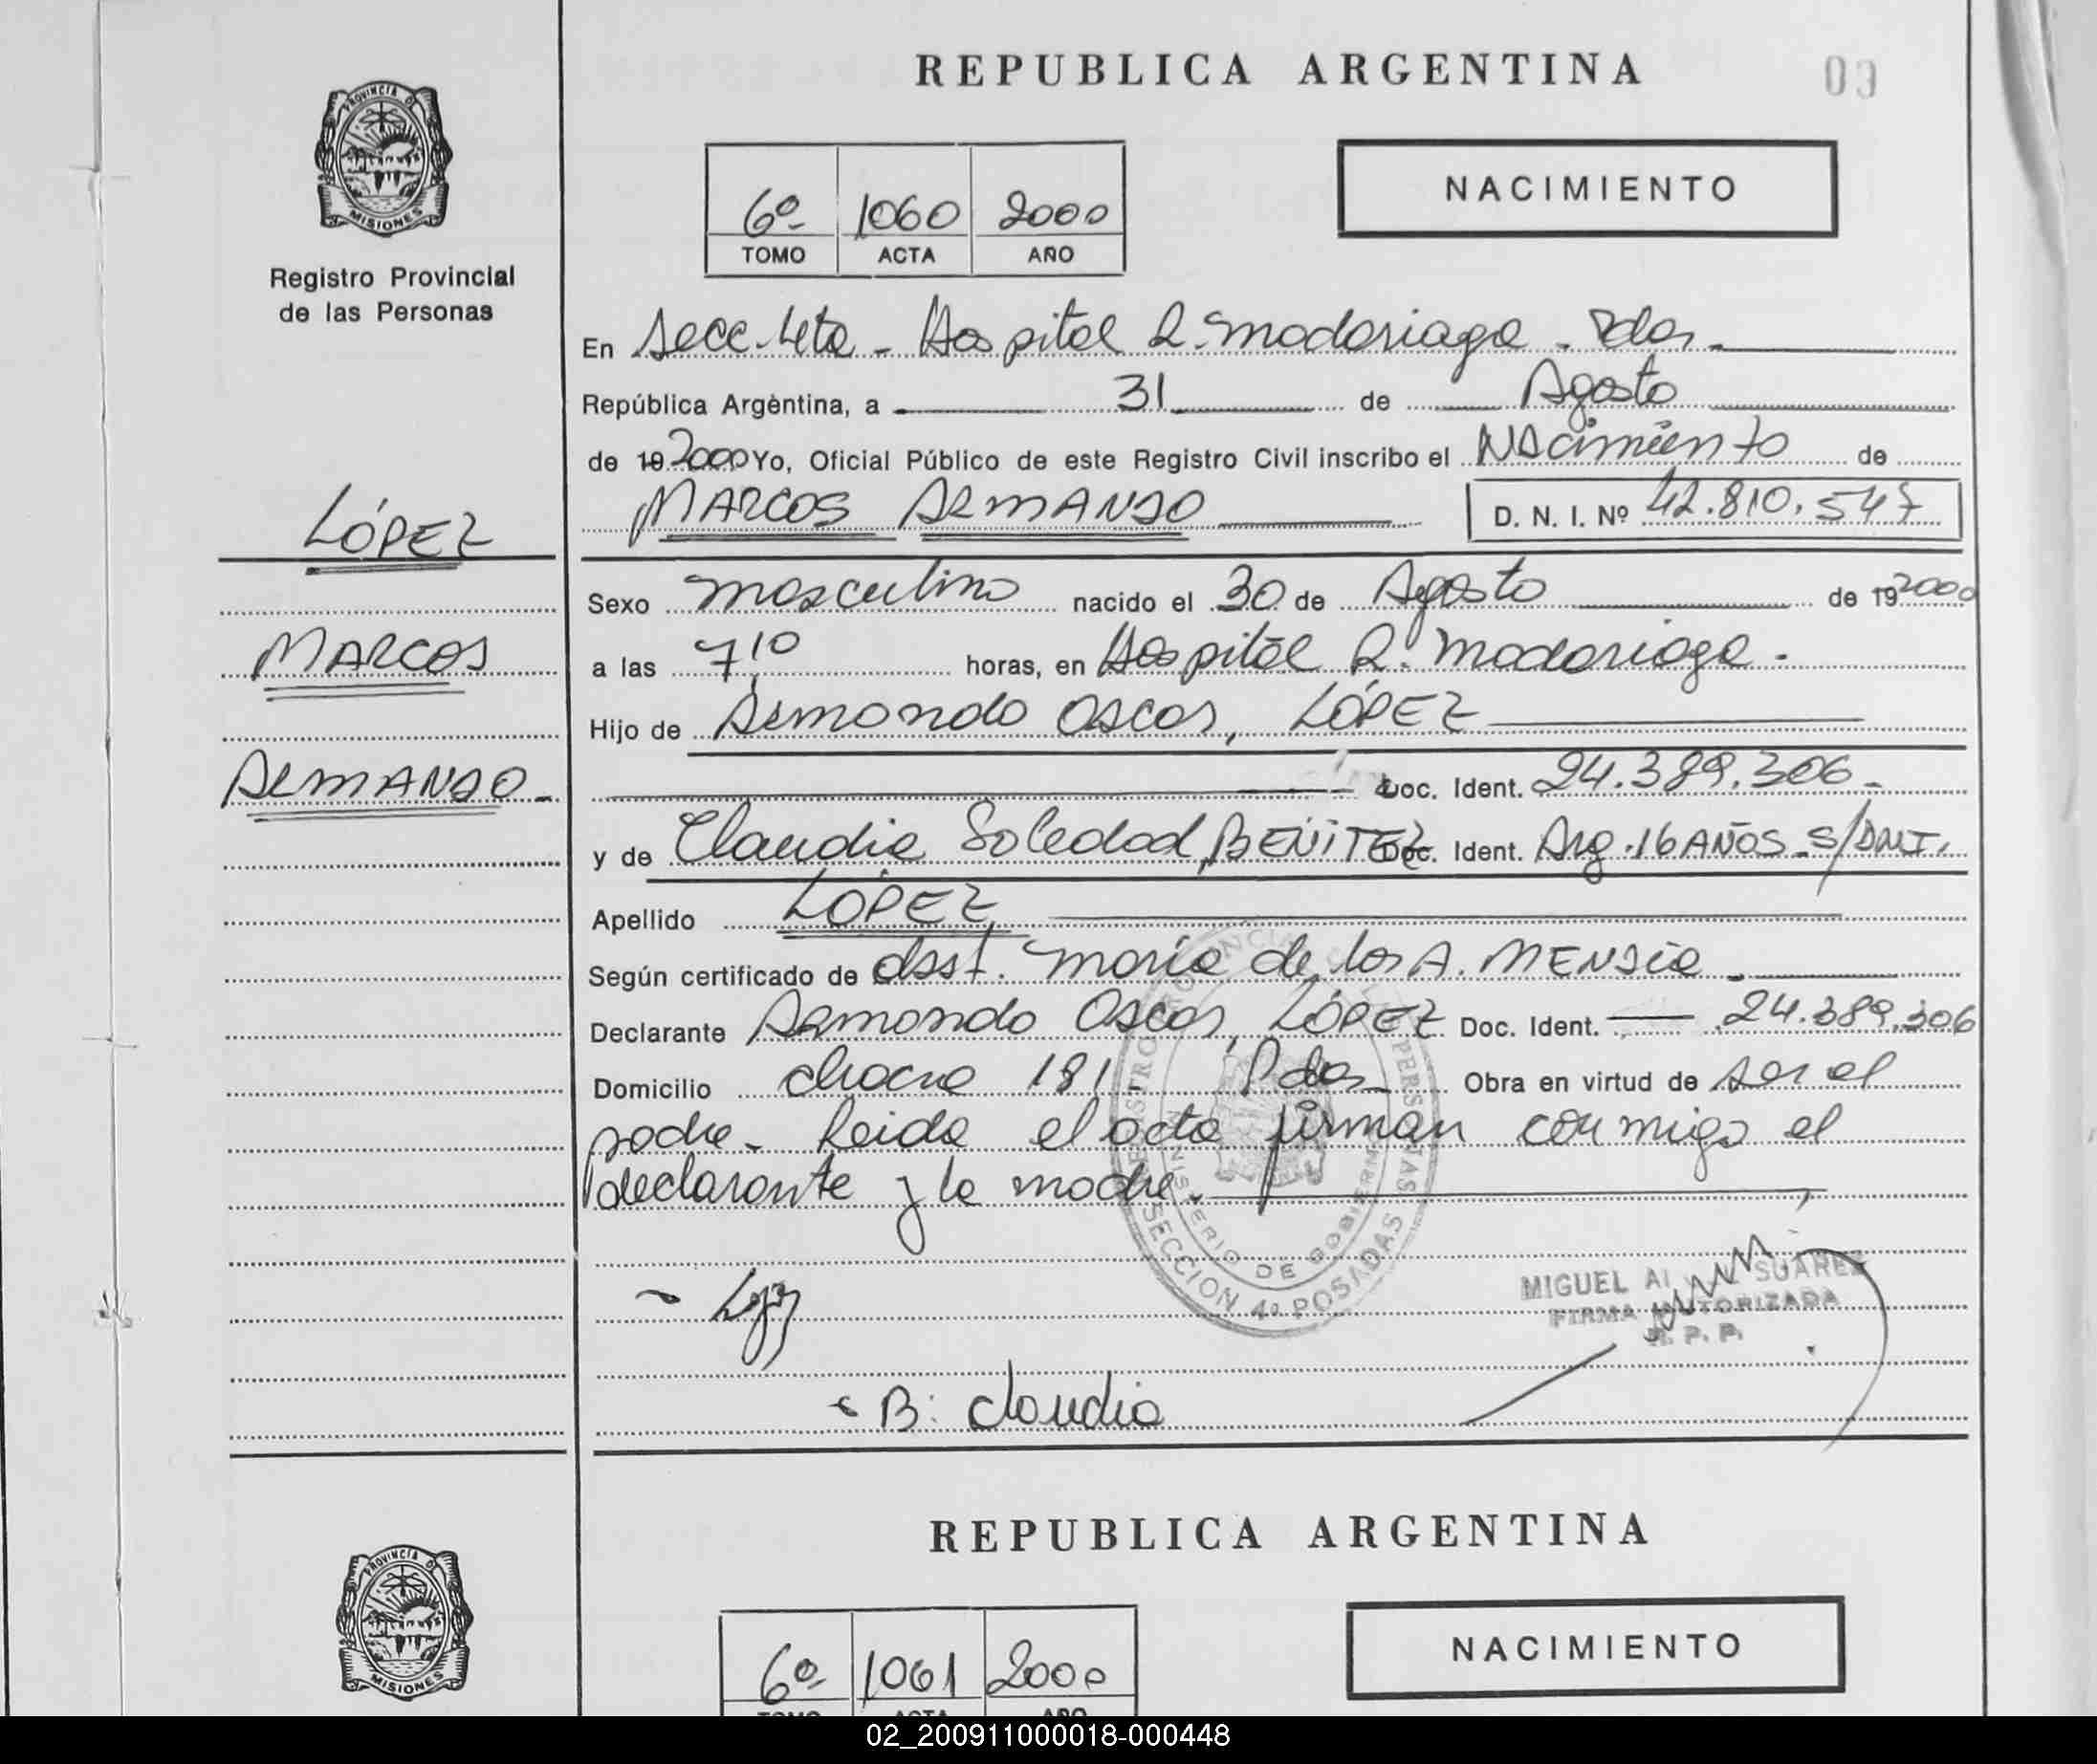 REPUBLICA ARGENTINA
03
PROVINCIA DE
MISIONES
Registro Provincial
de las Personas
6º 1060 2000
TOMO ACTA AÑO
NACIMIENTO
En Secc. 4ta - Hospital R. Madariaga - Pdas -
República Argentina, a 31 de Agosto
de 19 2000 Yo, Oficial Público de este Registro Civil inscribo el Nacimiento de
MARCOS ARMANDO D. N. I. Nº 42.810.547
LÓPEZ
MARCOS
ARMANDO -
Sexo masculino nacido el 30 de Agosto de 19 2000
a las 7,10 horas, en Hospital R. Madariaga -
Hijo de Armando Oscar, LÓPEZ
Doc. Ident. 24.389.306 -
y de Claudia Soledad, BENITEZ Doc. Ident. Arg. 16 AÑOS - S/DNI.
Apellido LÓPEZ
Según certificado de obst. María de los A. MENDIA -
Declarante Armando Oscar, LÓPEZ Doc. Ident. 24.389.306
Domicilio chacra 181 - Pdas Obra en virtud de ser el
padre - Leida el acta firman conmigo el
declarante y la madre.
MINISTERIO DE GOBIERNO
SECCION 4º POSADAS
MIGUEL SUAREZ
FIRMA AUTORIZADA
R. P. P.
B: claudia
REPUBLICA ARGENTINA
PROVINCIA DE
MISIONES
6º 1061 2000
TOMO ACTA AÑO
NACIMIENTO
02_200911000018-000448